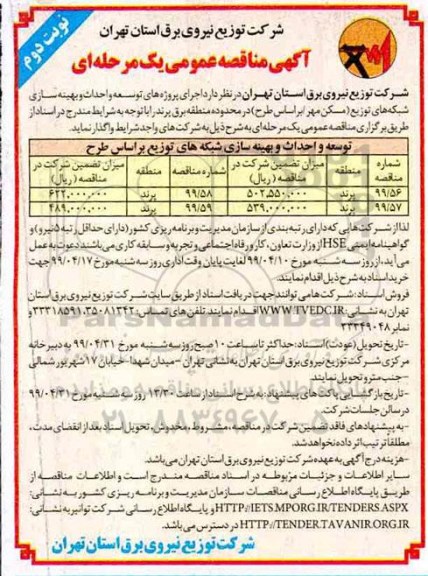 نوبت دوم
شرکت توزیع نیروی برق استان تهران
آگهی مناقصه عمومی یک مرحله ای
شرکت توزیع نیروی برق استان تهران در نظر دارد اجرای پروژه های توسعه و احداث و بهینه سازی
شبکه های توزیع (مسکن مهر / براساس طرح) در محدوده منطقه برق پرند را با توجه به شرایط مندرج در اسناد از
طریق برگزاری مناقصه عمومی یک مرحله ای به شرح ذیل به شرکت های واجد شرایط واگذار نماید.
توسعه و احداث و بهینه سازی شبکه های توزیع براساس طرح
شماره مناقصه منطقه میزان تضمین شرکت در مناقصه (ریال) شماره مناقصه منطقه میزان تضمین شرکت در مناقصه (ریال)
۹۹/۵۶ پرند ۵۰۲,۵۵۰,۰۰۰ ۹۹/۵۸ پرند ۶۲۲,۰۰۰,۰۰۰
۹۹/۵۷ پرند ۵۳۹,۰۰۰,۰۰۰ ۹۹/۵۹ پرند ۴۸۹,۰۰۰,۰۰۰
لذا از شرکت هایی که دارای رتبه بندی از سازمان مدیریت و برنامه ریزی کشور (دارای حداقل رتبه ۵ نیرو) و
گواهینامه ایمنی HSE از وزارت تعاون، کار و رفاه اجتماعی و تجربه و سابقه کاری می باشند دعوت به عمل
می آید، از روز سه شنبه مورخ ۹۹/۰۴/۱۰ لغایت پایان وقت اداری روز سه شنبه مورخ ۹۹/۰۴/۱۷ جهت
خرید اسناد به شرح ذیل اقدام نمایند.
فروش اسناد: شرکت ها می توانند جهت دریافت اسناد از طریق سایت شرکت توزیع نیروی برق استان
تهران به نشانی: WWW.TVEDC.IR اقدام نمایند. تلفن های تماس: ۳۵۰۸۱۳۴۲، ۳۳۳۱۸۵۹۱ و
نمابر ۳۳۳۴۹۰۴۸
-تاریخ تحویل (عودت) اسناد: حداکثر تا ساعت ۱۰ صبح روز سه شنبه مورخ ۹۹/۰۴/۳۱ به دبیرخانه
مرکزی شرکت توزیع نیروی برق استان تهران به نشانی تهران - میدان شهدا - خیابان ۱۷ شهریور شمالی
- جنب مترو تحویل نمایند.
-تاریخ بازگشایی پاکت های پیشنهاد: به شرح اسناد از ساعت ۱۳/۳۰ روز سه شنبه مورخ ۹۹/۰۴/۳۱
در سالن جلسات شرکت.
-به پیشنهادهای فاقد تضمین شرکت در مناقصه، مشروط، مخدوش، تحویل اسناد بعد از انقضای مدت،
مطلقا ترتیب اثر داده نخواهد شد.
-هزینه درج آگهی به عهده شرکت توزیع نیروی برق استان تهران می باشد.
سایر اطلاعات و جزئیات مربوطه در اسناد مناقصه مندرج است و اطلاعات مناقصه از
طریق پایگاه اطلاع رسانی مناقصات سازمان مدیریت و برنامه ریزی کشور به نشانی:
HTTP://IETS.MPORG.IR/TENDERS.ASPX و پایگاه اطلاع رسانی شرکت توانیر به نشانی:
HTTP://TENDER.TAVANIR.ORG.IR در دسترس می باشد.
شرکت توزیع نیروی برق استان تهران